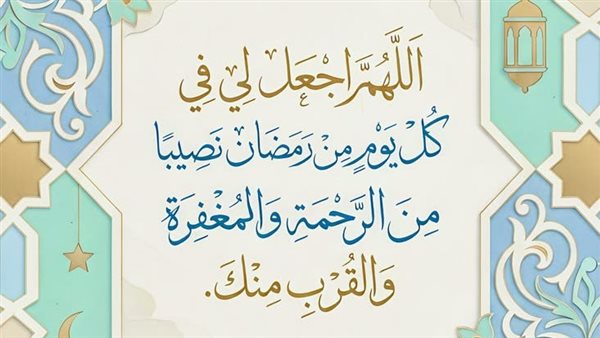 اَللَّهُمَّ اجْعَل لِي فِي
كُلْ يَوْمٍ مِنْ رَمَضَان نَصِيبًا
مِنَ الرَّحْمَةِ وَالمُغْفِرَة
وَالقُرْبِ مِنْكَ.